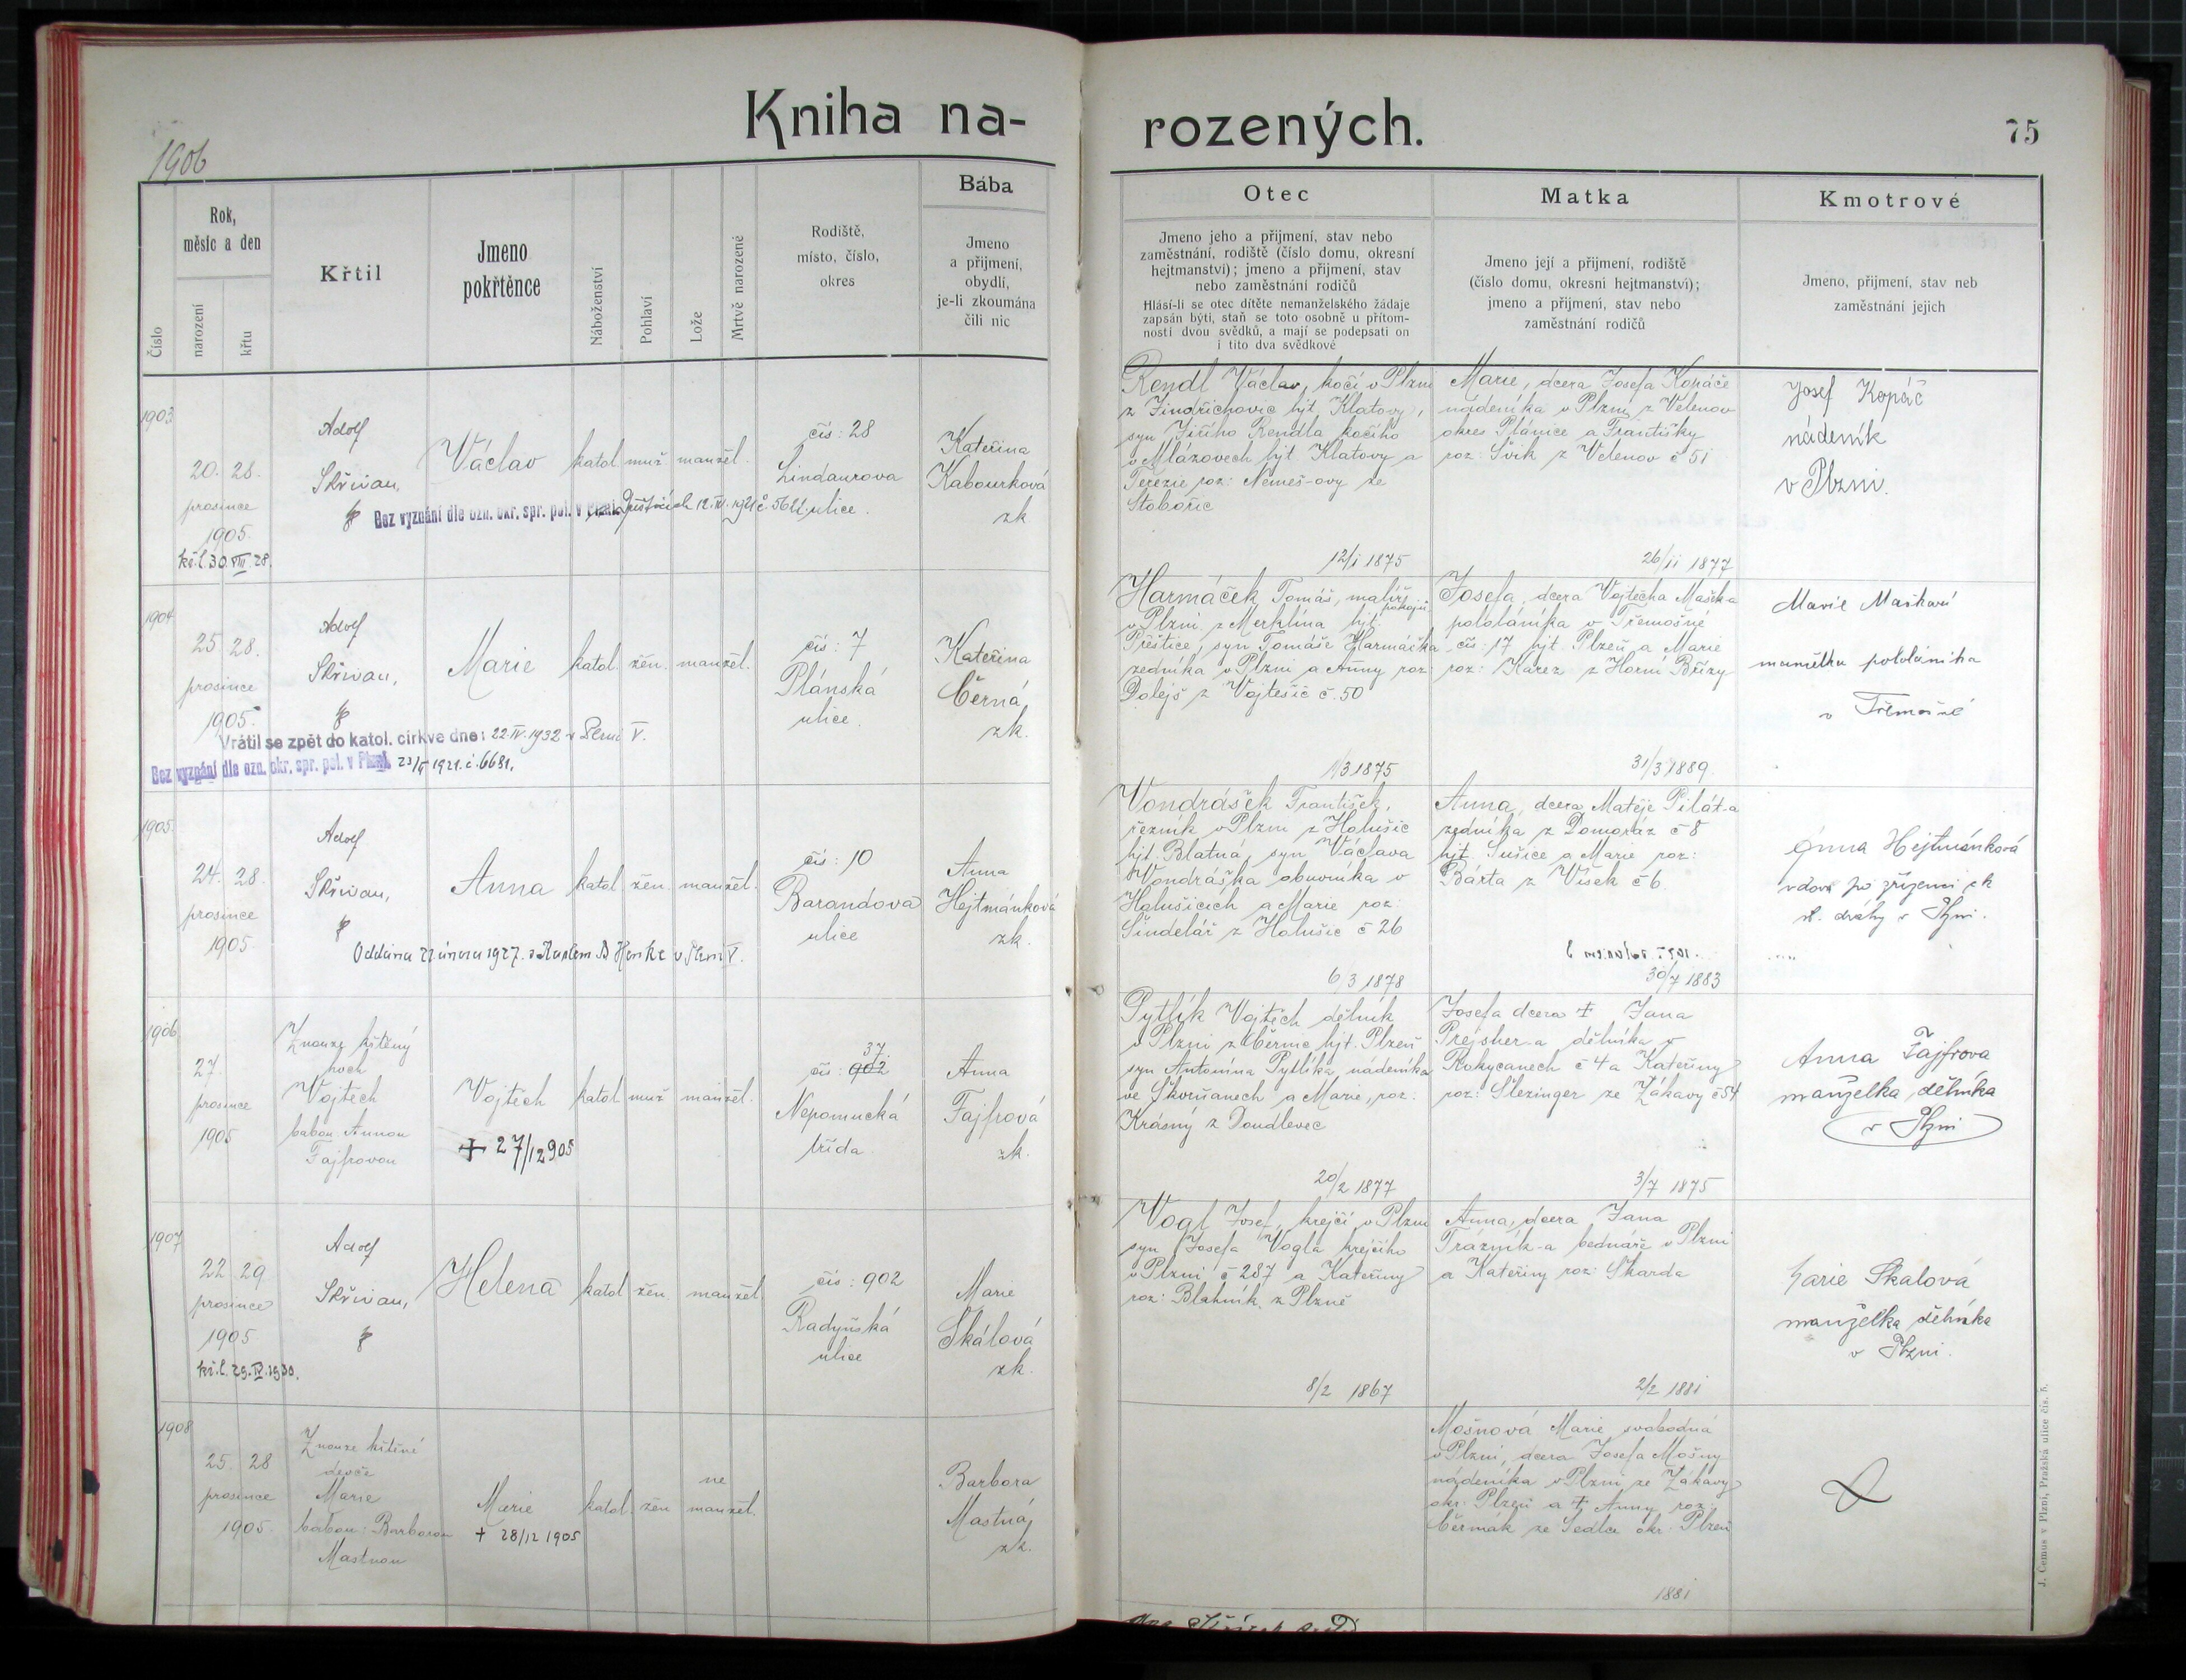 Kniha na-
rozených.
75
1906
Číslo
Rok,
měsíc a den
narození
křtu
Křtil
Jmeno
pokřtěnce
Náboženství
Pohlaví
Lože
Mrtvě narozené
Rodiště,
místo, číslo,
okres
Bába
Jmeno
a přijmení,
obydlí,
je-li zkoumána
čili nic
Otec
Jmeno jeho a přijmení, stav nebo
zaměstnání, rodiště (číslo domu, okresní
hejtmanství); jmeno a přijmení, stav
nebo zaměstnání rodičů
Hlásí-li se otec dítěte nemanželského žádaje
zapsán býti, staň se toto osobně u přítom-
nosti dvou svědků, a mají se podepsati on
i tito dva svědkové
Matka
Jmeno její a přijmení, rodiště
(číslo domu, okresní hejtmanství);
jmeno a přijmení, stav nebo
zaměstnání rodičů
Kmotrové
Jmeno, přijmení, stav neb
zaměstnání jejich
1903
20. 28.
prosince
1905.
kř. l. 30. VIII. 28.
Adolf
Skřivan,
Václav
katol. muž. manžel.
čís: 28
Lindaurova
ulice.
Kateřina
Kabourková
zk.
Bez vyznání dle ozn. okr. spr. pol. v
Rendl Václav, kočí v Plzni
z Jindřichovic hjt. Klatovy,
syn Jiřího Rendla kočího
v Mlázovech hjt. Klatovy a
Terezie roz: Nemeš-ovy ze
Stobořic
12/1 1875
Marie, dcera Josefa Kopáče
nádeníka v Plzni z Velenov
okres Plánice a Františky
roz: Švik z Velenov č 51
26/11 1877
Josef Kopáč
nádeník
v Plzni.
1904
25. 28.
prosince
1905.
Adolf
Skřivan,
Marie
katol. žen. manžel.
čís: 7
Plánská
ulice.
Kateřina
Černá,
zk.
Vrátil se zpět do katol. církve dne: 22. IV. 1932 v Plzni V.
Bez vyznání dle ozn. okr. spr. pol. v Plzni. 23/5 1921. č. 6681.
Harmáček Tomáš, malíř
pokojů
v Plzni z Merklína hjt:
Přeštice, syn Tomáše Harmáčka
zedníka v Plzni a Anny roz:
Dolejš z Vojtěšic č. 50
1/3 1875
Josefa, dcera Vojtěcha Maška
pololáníka v Třemošné
čís: 17 hjt. Plzeň a Marie
roz: Karez z Horní Břízy
31/3 1889.
Marie Mašková
manželka pololáníka
v Třemošné
1905.
24. 28.
prosince
1905.
Adolf
Skřivan,
Anna
katol. žen. manžel.
čís: 10
Barandova
ulice
Anna
Hejtmánková
zk.
Oddána 22. února 1927. s Karlem Henke v Plzni V.
Vondrášek František,
řezník v Plzni z Holušic
hjt. Blatná, syn Václava
Vondráška obuvníka v
Holušicích a Marie roz:
Šindelář z Holušic č 26
6/3 1878
Anna, dcera Matěje Pilát-a
zedníka z Domoraz č 8
hjt. Sušice a Marie roz:
Bárta z Vísek č 6.
30/7 1883
Anna Hejtmánková
vdova po zřízenci ck
st. dráhy v Plzni.
1906
27.
prosince
1905
Z nouze křtěný
hoch
Vojtěch
babou Annou
Fajfrovou
Vojtěch
+ 27/12 905
katol. muž. manžel.
37
čís: 902
Nepomucká
třída.
Anna
Fajfrová
zk.
Pytlík Vojtěch dělník
v Plzni z Černic hjt. Plzeň
syn Antonína Pytlíka, nádeníka
ve Skvrňanech a Marie, roz:
Krásný z Doudlevec
20/2 1877
Josefa dcera + Jana
Prejsher-a dělníka v
Rokycanech č 4 a Kateřiny
roz: Slezinger ze Zákavy č 54
3/7 1875
Anna Fajfrova
manželka dělníka
v Plzni
1907
22. 29
prosince
1905
kř. l. 29. IV. 1930.
Adolf
Skřivan,
Helena
katol. žen. manžel.
čís: 902
Radyňská
ulice
Marie
Skálová
zk.
Vogl Josef, krejčí v Plzni
syn Josefa Vogla krejčího
v Plzni č 287 a Kateřiny
roz: Blahník z Plzně
8/2 1867
Anna, dcera Jana
Trázník-a bednáře v Plzni
a Kateřiny roz: Skarda
2/2 1881
Marie Skalová
manželka dělníka
v Plzni.
1908
25. 28
prosince
1905.
Z nouze křtěné
děvče
Marie
babou: Barborou
Mastnou
Marie
+ 28/12 1905
katol. žen.
ne
manžel.
Barbora
Mastná,
zk.
Mošnová Marie svobodná
v Plzni, dcera Josefa Mošny
nádeníka v Plzni ze Zákavy
okr. Plzeň a + Anny roz:
Čermák ze Sedlce okr. Plzeň
1881
J. Černus v Plzni, Pražská ulice čís. 5.